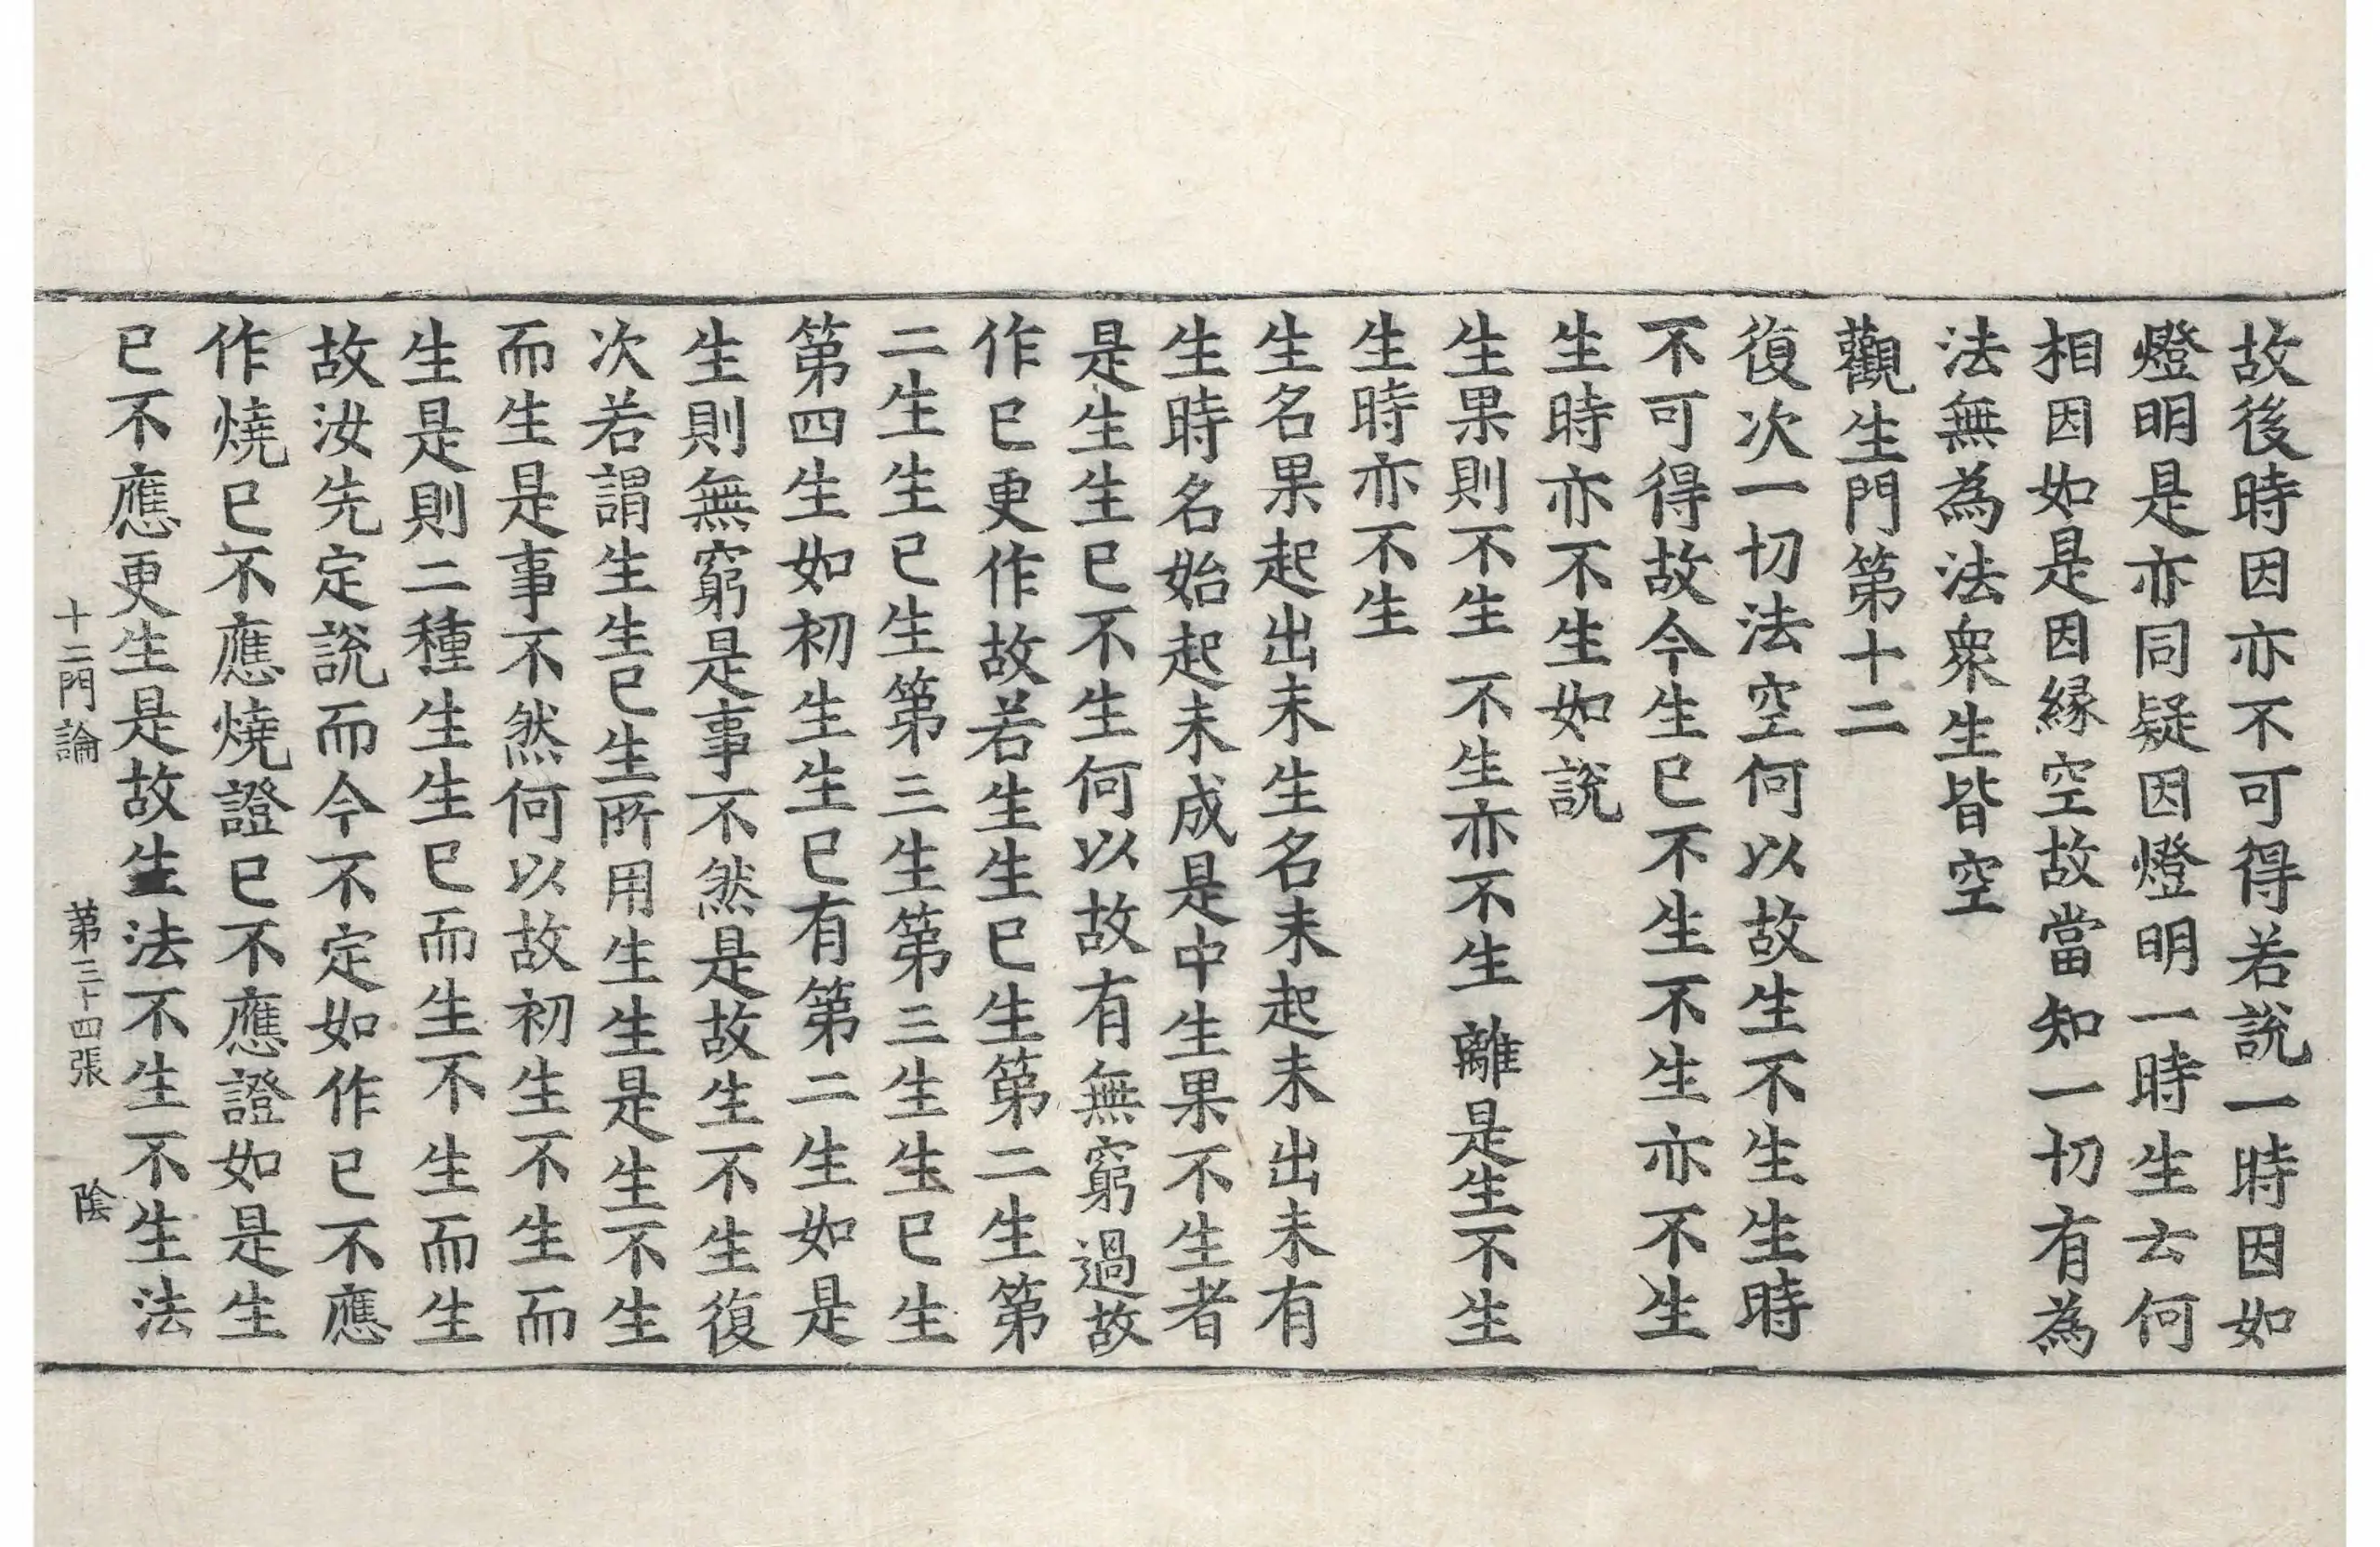 故後時因亦不可得若說一時因如
燈明是亦同疑因燈明一時生云何
相因如是因縁空故當知一切有為
法無為法衆生皆空
觀生門第十二
復次一切法空何以故生不生生時
不可得故今生已不生不生亦不生
生時亦不生如說
生果則不生 不生亦不生 離是生不生
生時亦不生
生名果起出未生名未起未出未有
生時名始起未成是中生果不生者
是生生已不生何以故有無窮過故
作已更作故若生生已生第二生第
二生生已生第三生第三生生已生
第四生如初生生已有第二生如是
生則無窮是事不然是故生不生復
次若謂生生已生所用生生是生不生
而生是事不然何以故初生不生而
生是則二種生生已而生不生而生
故汝先定說而今不定如作已不應
作燒已不應燒證已不應證如是生
已不應更生是故生法不生不生法
十二門論 第三十四張 陰